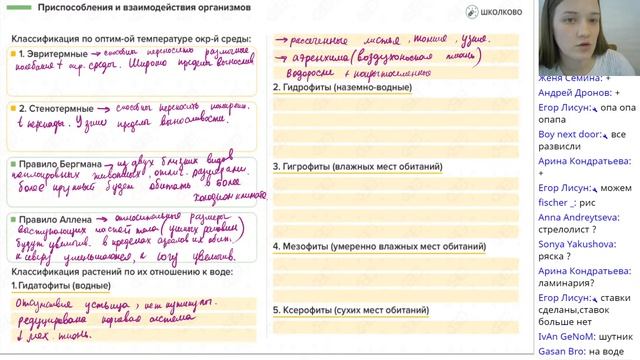 Приспособления и взаимодействия организмов
ШКОЛКОВО
Классификация по оптим-ой температуре окр-й среды:
1. Эвритермные → способны переносить различные
колебания t окр. среды. Широкие пределы выносли
2. Стенотермные → способны переносить
t Узкие пределы выносливости.
Правило Бергмана → из двух близких видов
теплокровных животных, отлич. размерами
более крупный будет обитать в более
холодном климате.
Правило Аллена → относительные размеры
выступающих частей тела (ушных раковин)
будут увелич. в пределах ареалов их обит.
к северу уменьшаются, к югу увелич.
Классификация растений по их отношению к воде:
1.Гидатофиты (водные)
Отсутствие устьица, нет кутикулы.
редуцирована корневая система
↓ мех. ткань.
→ рассеченные листья, тонкие, узкие.
→ аэренхима (воздухоносная ткань)
Водоросли +
2. Гидрофиты (наземно-водные)
3. Гигрофиты (влажных мест обитаний)
4. Мезофиты (умеренно влажных мест обитаний)
5. Ксерофиты (сухих мест обитаний)
Женя Семина: +
Андрей Дронов: +
Егор Лисун: опа опа
опапа
Boy next door: все
развисли
Арина Кондратьева:
+
Егор Лисун: можем
fischer _: рис
Anna Andreytseva:
стрелолист ?
Sonya Yakushova:
ряска ?
Арина Кондратьева:
ламинария?
Егор Лисун: ставки
сделаны,ставок
больше нет
IvAn GeNoM: шутник
Gasan Bro: на воде